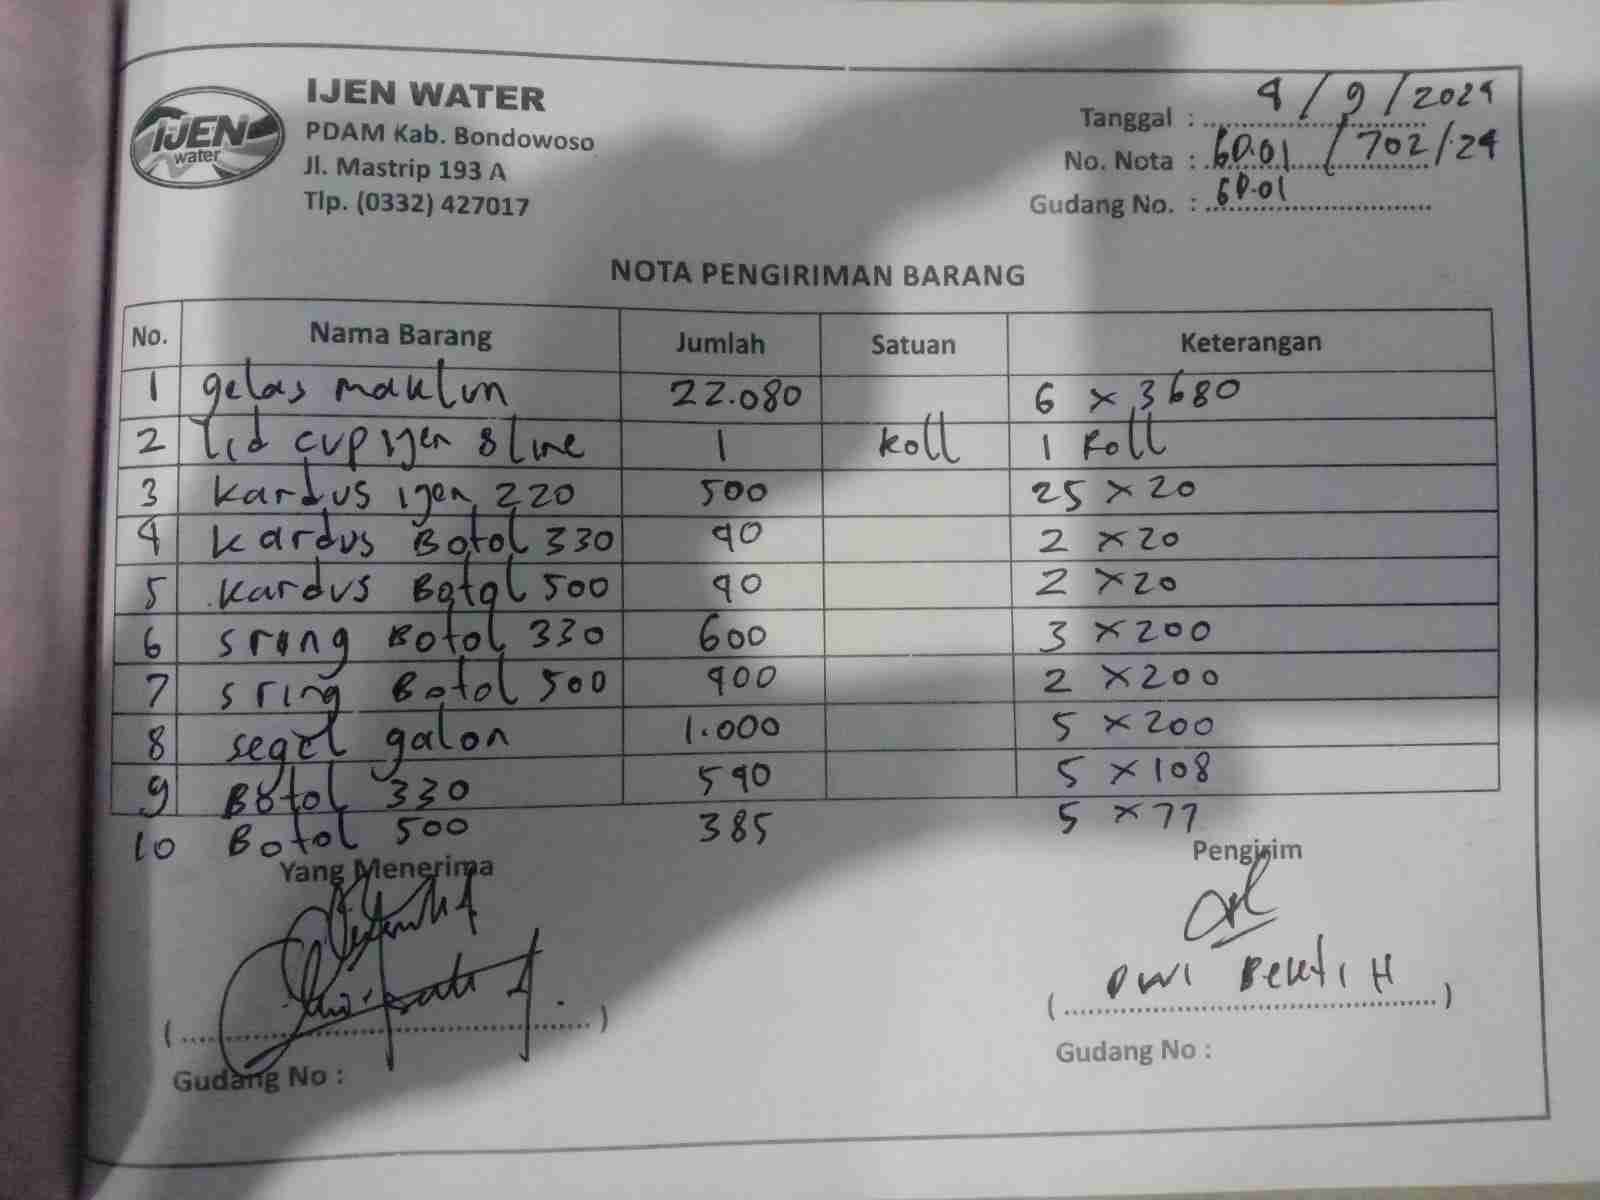 IJEN WATER
PDAM Kab. Bondowoso
Jl. Mastrip 193 A
Tlp. (0332) 427017
IJEN
water
Tanggal : 4 / 9 / 2024
No. Nota : 60.01 / 702 / 24
Gudang No. : 60.01
NOTA PENGIRIMAN BARANG
No. Nama Barang Jumlah Satuan Keterangan
1 gelas maklun 22.080 6 x 3680
2 Lid cup ijen 8 line 1 Roll 1 Roll
3 kardus ijen 220 500 25 x 20
4 kardus Botol 330 40 2 x 20
5 kardus Botol 500 40 2 x 20
6 sring Botol 330 600 3 x 200
7 sring Botol 500 400 2 x 200
8 segel galon 1.000 5 x 200
9 Botol 330 540 5 x 108
10 Botol 500 385 5 x 77
Yang Menerima Pengirim
DWI BEKTI H
(..............) (..............)
Gudang No : Gudang No :